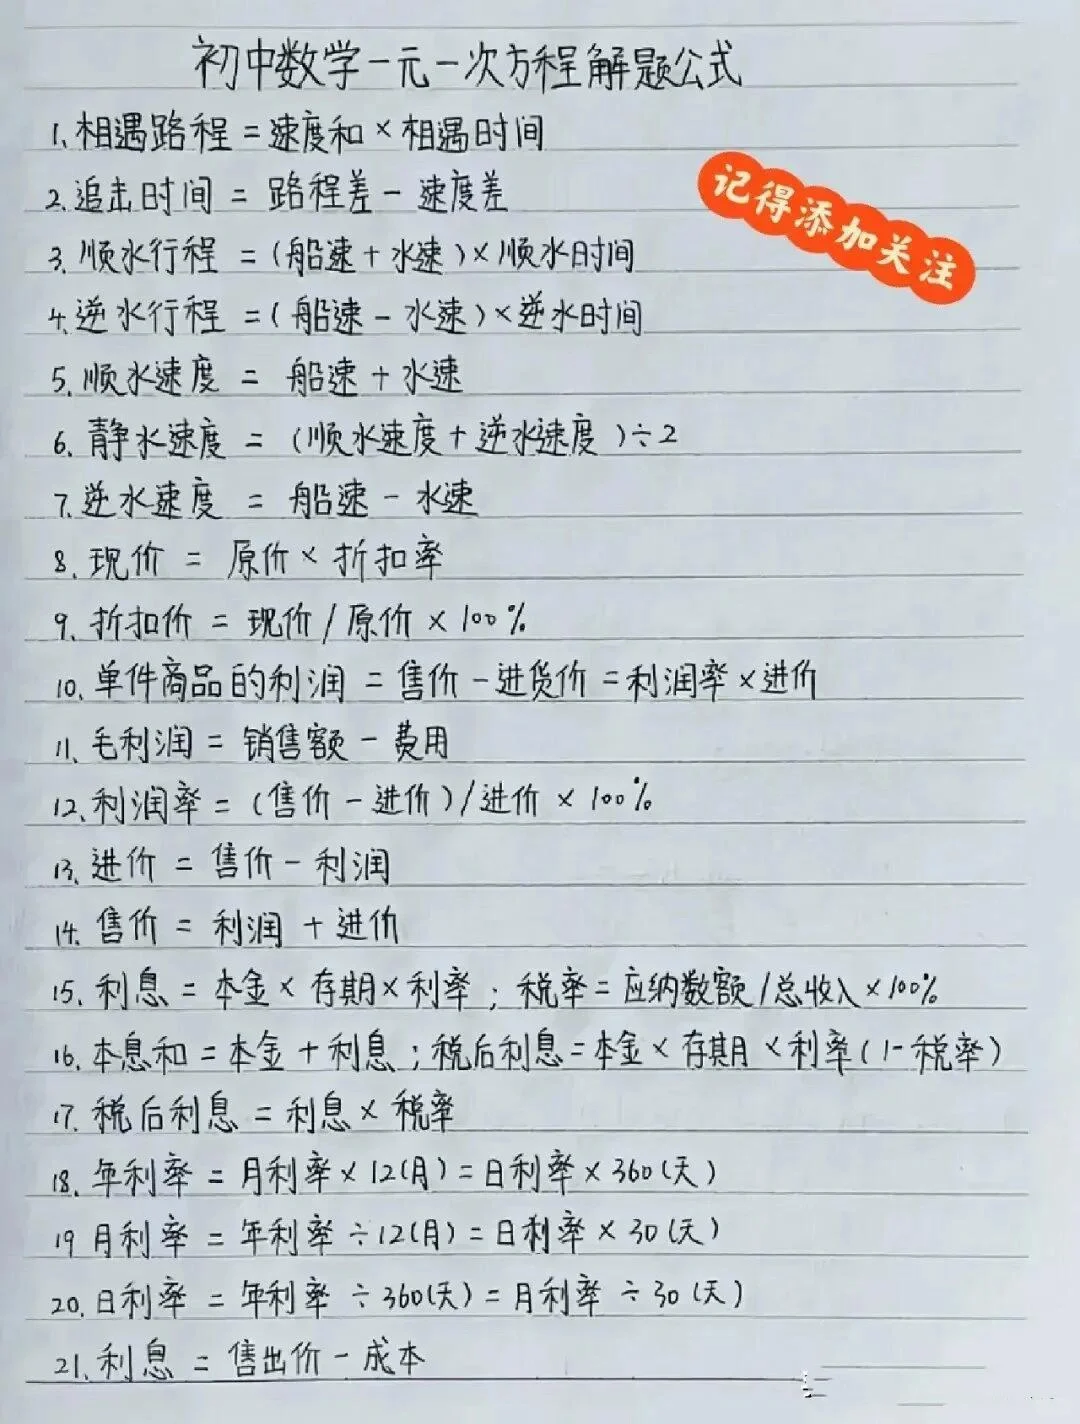 初中数学一元一次方程解题公式
1.相遇路程=速度和×相遇时间
2.追击时间=路程差-速度差
记得添加关注
3.顺水行程=(船速+水速)×顺水时间
4.逆水行程=(船速-水速)×逆水时间
5.顺水速度=船速+水速
6.静水速度=(顺水速度+逆水速度)÷2
7.逆水速度=船速-水速
8.现价=原价×折扣率
9.折扣价=现价/原价×100%
10.单件商品的利润=售价-进货价=利润率×进价
11.毛利润=销售额-费用
12.利润率=(售价-进价)/进价×100%
13.进价=售价-利润
14.售价=利润+进价
15.利息=本金×存期×利率;税率=应纳数额/总收入×100%
16.本息和=本金+利息;税后利息=本金×存期×利率(1-税率)
17.税后利息=利息×税率
18.年利率=月利率×12(月)=日利率×360(天)
19月利率=年利率÷12(月)=日利率×30(天)
20.日利率=年利率÷360(天)=月利率÷30(天)
21.利息=售出价-成本